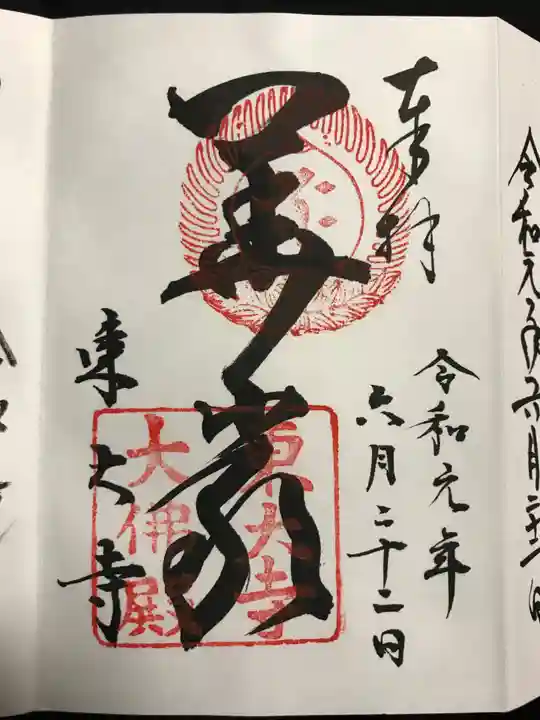 令和元年六月二十二日
奉拝
令和元年
六月二十二日
華厳
東大寺
東大寺
大佛殿